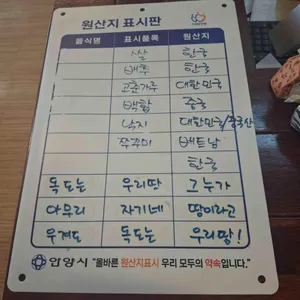 원산지 표시판
음식명 표시품목 원산지
쌀 한국
배추 한국
고춧가루 대한민국
백합 중국
낙지 대한민국/중국산
쭈꾸미 베트남
한국
독도는 우리땅 그누가
아무리 자기네 땅이라고
우겨도 독도는 우리땅!
안양시 "올바른 원산지표시 우리 모두의 약속입니다."